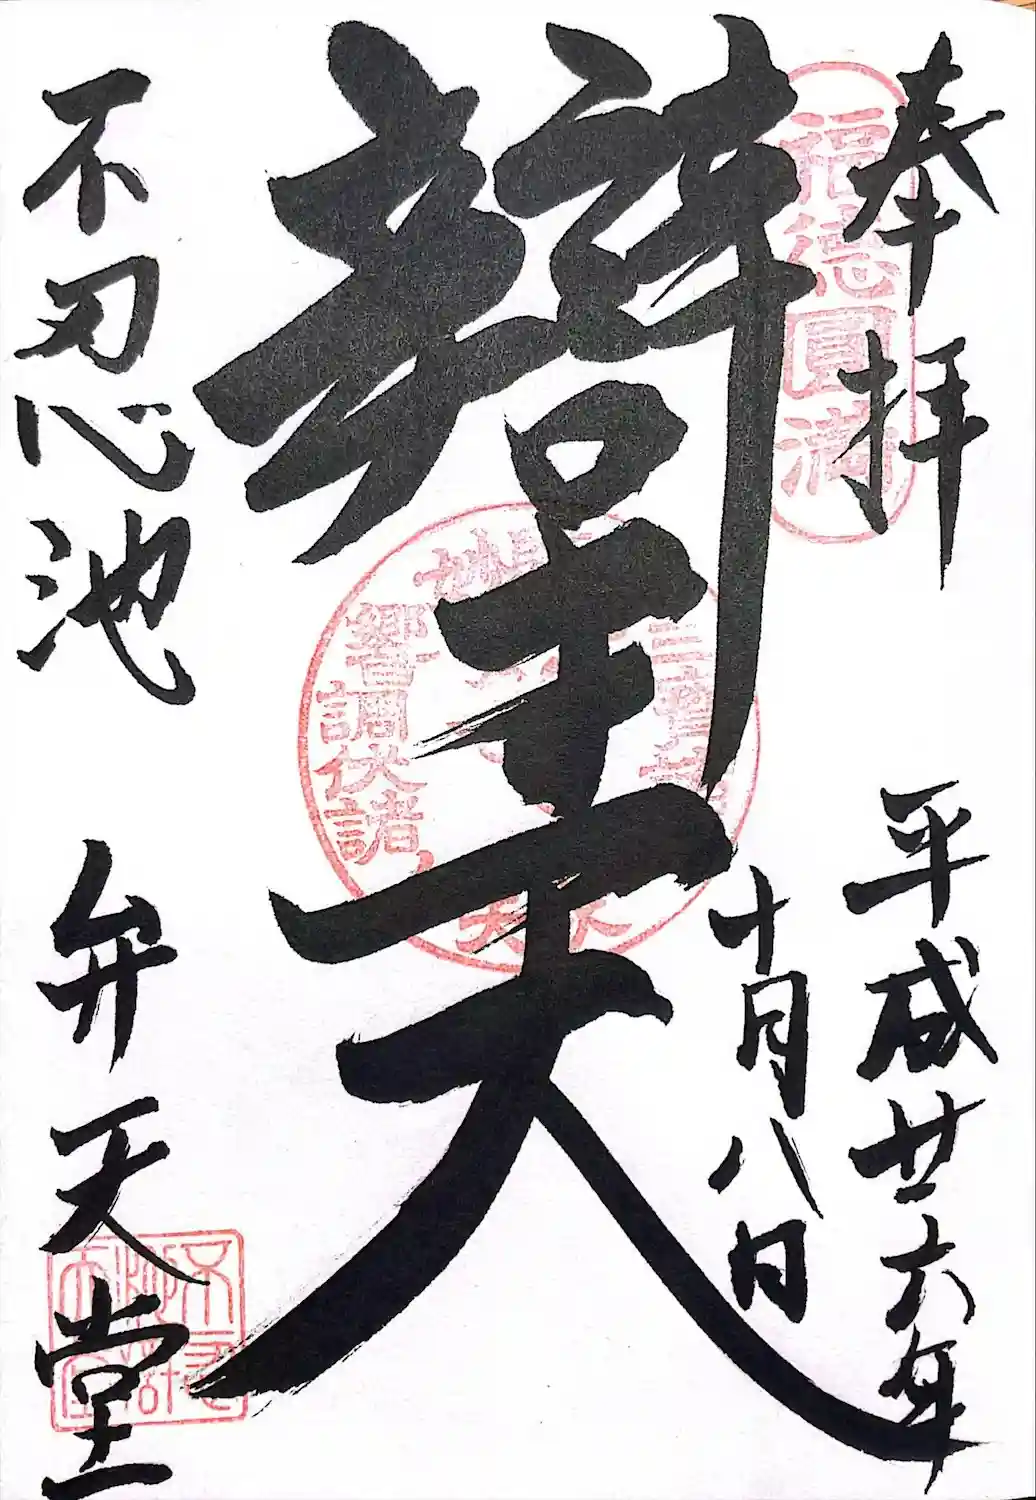 奉拝
福徳圓満
平成廿六年
十月八日
辯天
響調伏諸
不忍池
弁天堂
不忍池辯天堂